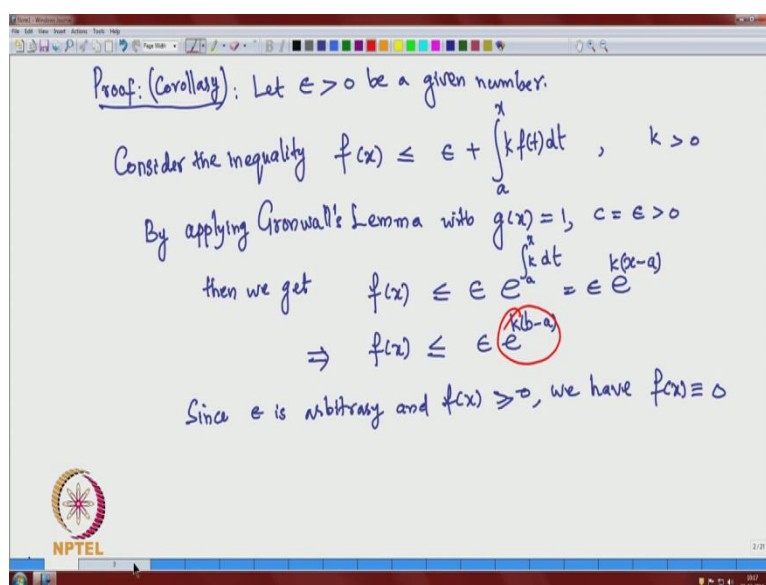 Note1 - Windows Journal
File Edit View Insert Actions Tools Help
Proof: (Corollary): Let ϵ > 0 be a given number.
Consider the inequality f(x) ≤ ϵ + ∫_a^x k f(t) dt , k > 0
By applying Gronwall's Lemma with g(x) = 1, c = ϵ > 0
then we get f(x) ≤ ϵ e^{∫_a^x k dt} = ϵ e^{k(x-a)}
⇒ f(x) ≤ ϵ e^{k(b-a)}
Since ϵ is arbitrary and f(x) ≥ 0, we have f(x) ≡ 0
NPTEL
2/21
3